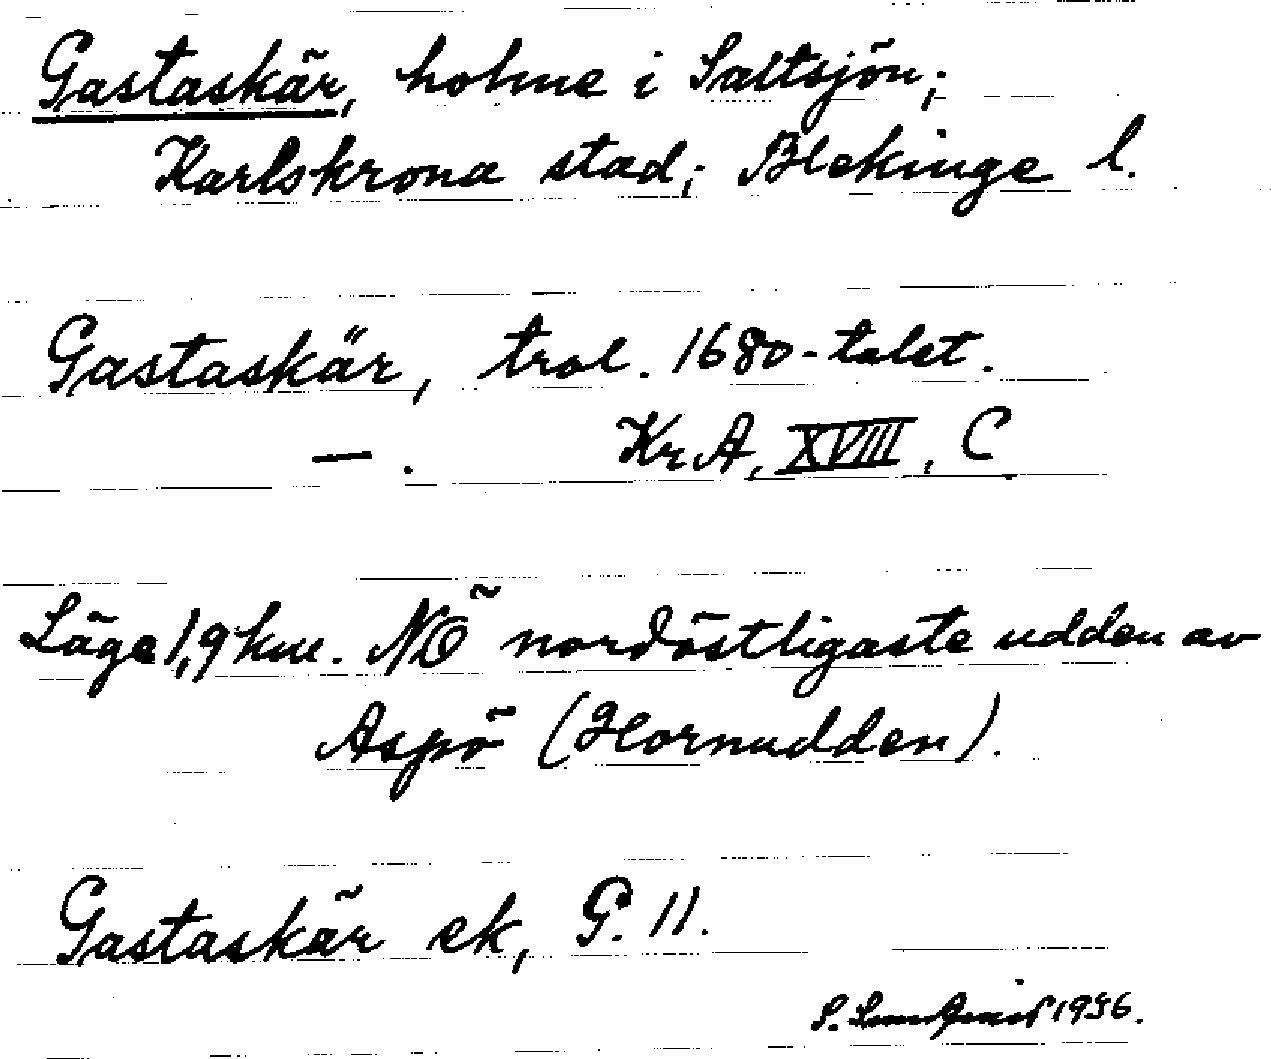 Gastaskär, holme i Saltsjön;
Karlskrona stad; Blekinge l.
Gastaskär, trol. 1680-talet.
—. Kr A, XVIII, C
Läge 1,9 km. NÖ nordöstligaste udden av
Aspö (Hornudden).
Gastaskär ek, G. 11.
S. 1936.